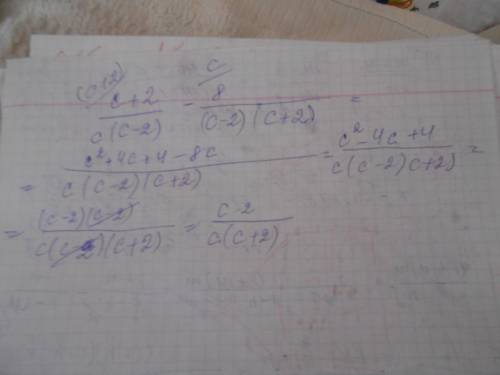 (c+2) c
(c+2)/(c(c-2)) - 8/((c-2)(c+2)) =
= (c²+4c+4-8c)/(c(c-2)(c+2)) = (c²-4c+4)/(c(c-2)c+2)) =
= ((c-2)(c-2))/(c(c-2)(c+2)) = (c-2)/(c(c+2))